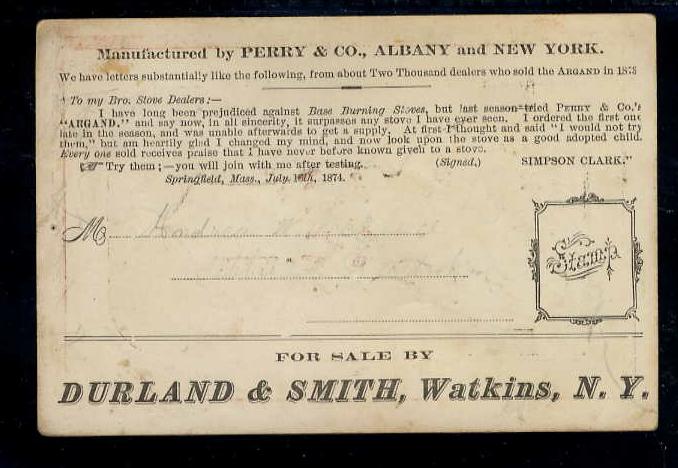 Manufactured by PERRY & CO., ALBANY and NEW YORK.
We have letters substantially like the following, from about Two Thousand dealers who sold the ARGAND in 1873
To my Bro. Stove Dealers:—
I have long been prejudiced against Base Burning Stoves, but last season tried PERRY & Co.'s
"ARGAND," and say now, in all sincerity, it surpasses any stove I have ever seen. I ordered the first one
late in the season, and was unable afterwards to get a supply. At first I thought and said "I would not try
them," but am heartily glad I changed my mind, and now look upon the stove as a good adopted child.
Every one sold receives praise that I have never before known given to a stove.
☞ Try them;—you will join with me after testing. (Signed,) SIMPSON CLARK."
Springfield, Mass., July 16th, 1874.
M
Stamp
FOR SALE BY
DURLAND & SMITH, Watkins, N. Y.